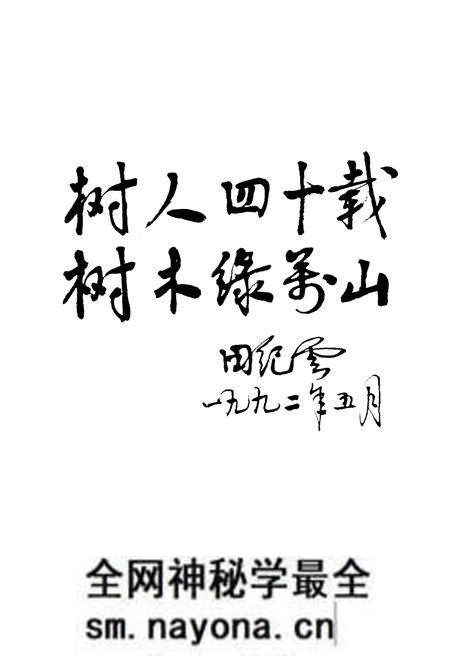 树人四十载
树木緑萬山
田纪雲
一九九二年五月
全网神秘学最全
sm.nayona.cn